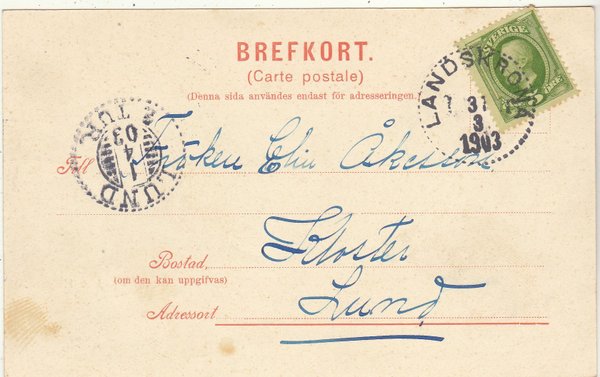 BREFKORT.
(Carte postale)
(Denna sida användes endast för adresseringen.)
SVERIGE
LANDSKRONA
31
3
1903
LUND
1
4
03
2 TUR
Till Fröken Elin Åkesson
Kloster
Bostad,
(om den kan uppgifvas)
Lund
Adressort